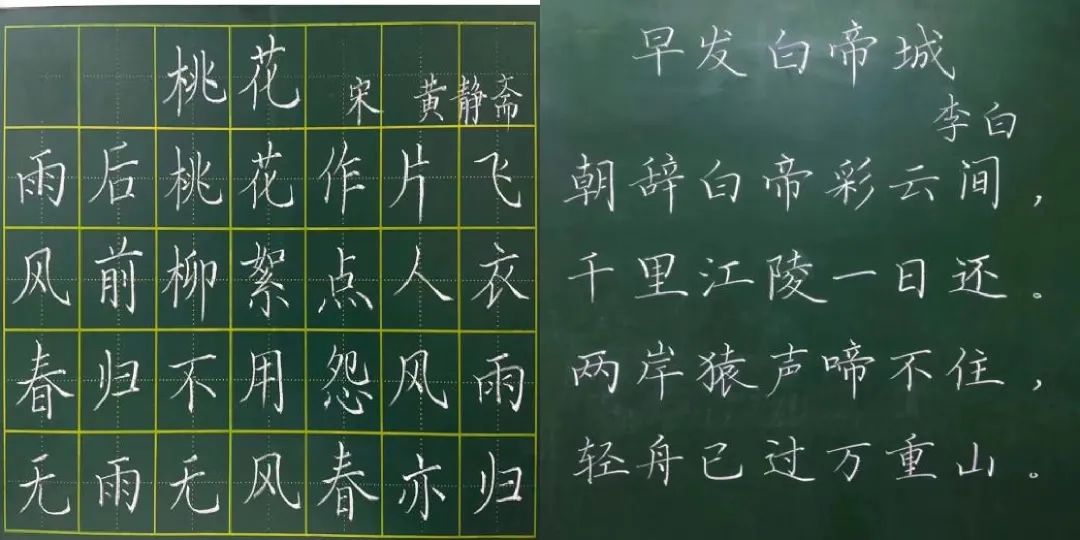 桃花
宋 黄静斋
雨后桃花作片飞
风前柳絮点人衣
春归不用怨风雨
无雨无风春亦归
早发白帝城
李白
朝辞白帝彩云间，
千里江陵一日还。
两岸猿声啼不住，
轻舟已过万重山。